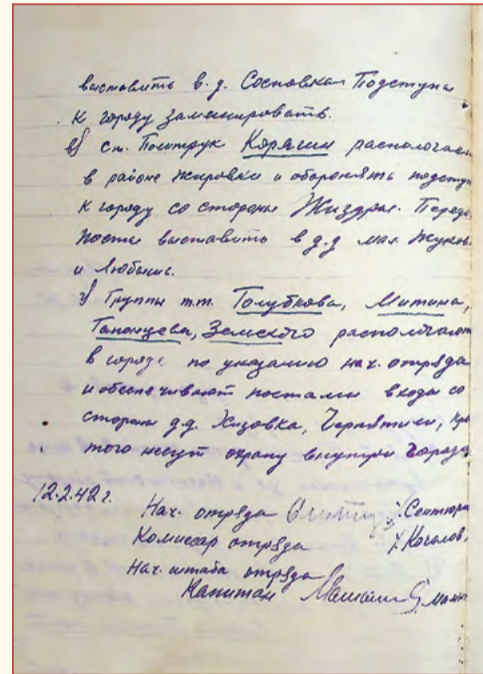 выставить в.д. Сосновка Подступы
к городу заминировать.
в) ст. Политрук Корягин располагает
в районе Жировки и оборонять подступ
к городу со стороны Жиздры. Передо
посты выставить в д.д мал. Жуков
и Любышь.
г) Группы т.т. Голубкова, Митина,
Земского располагают
в городе по указанию нач. отряда
и обеспечивают постами входы со
стороны д.д. Хизовка, Чернятичи, кро
того несут охрану внутри города
12.2.42 г.
Нач. отряда
Комиссар отряда
Нач. штаба отряда
Капитан